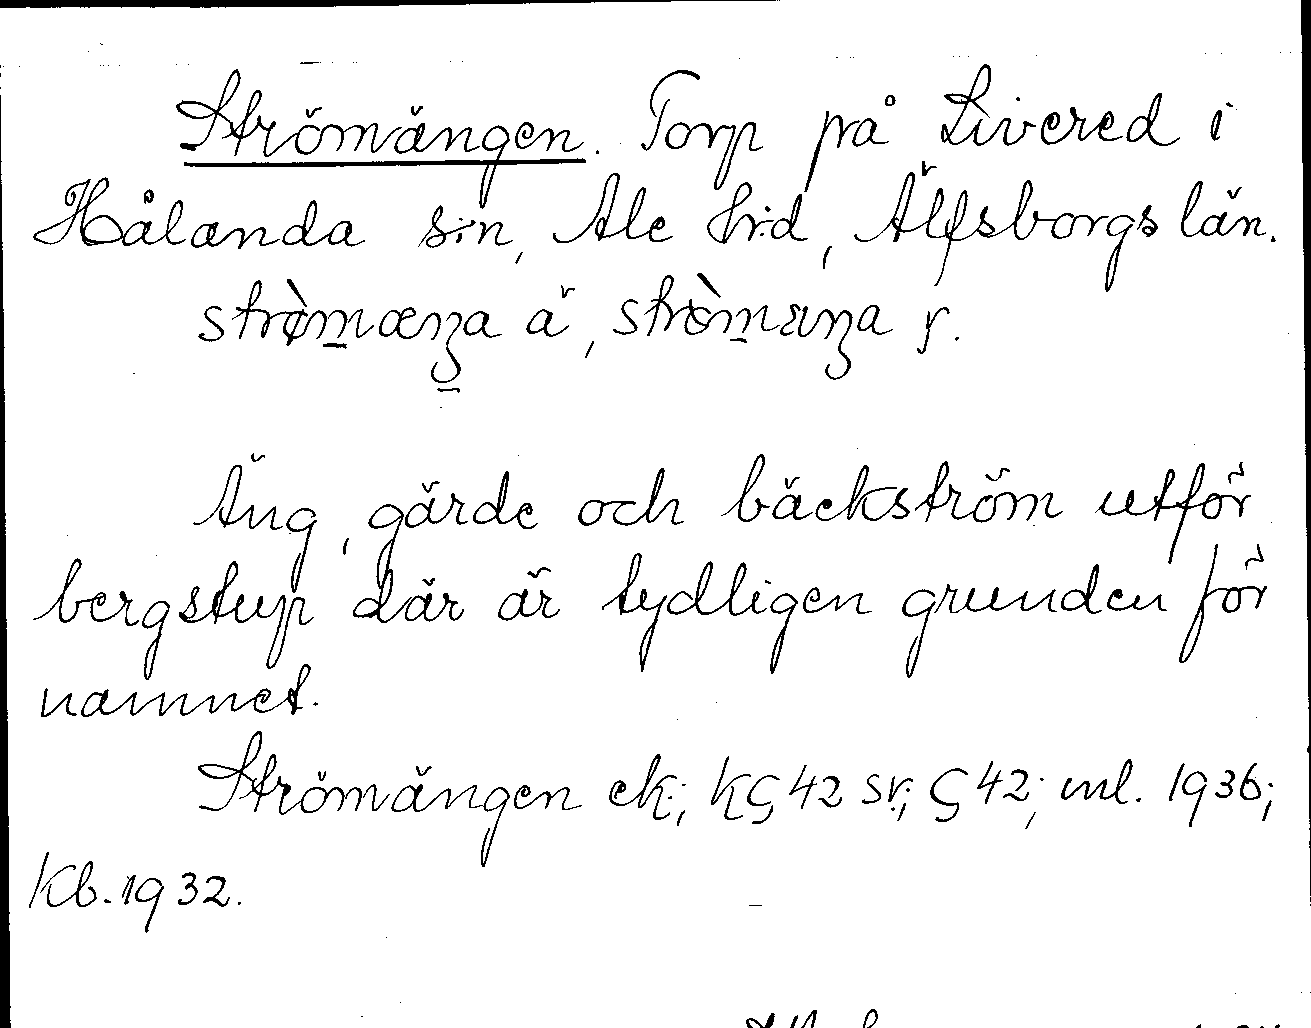 Strömängen. Torp på Livered i
Hålanda s:n, Ale h:d, Älfsborgs län.
strø̀mæŋa ä, strø̀maŋa y.
Äng, gärde och bäckström utför
bergstup där är tydligen grunden för
namnet.
Strömängen ek; kç 42 sv; ç 42; ml. 1936;
Kb. 1932.